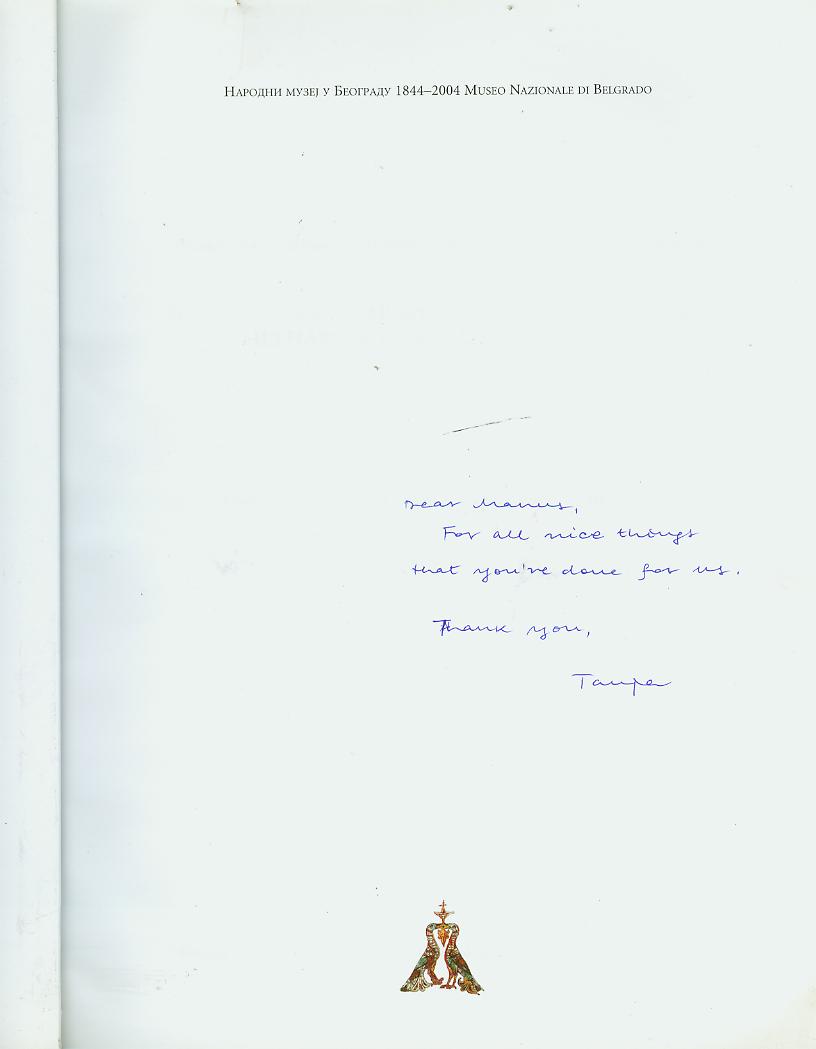 Народни музеј у Београду 1844–2004 Museo Nazionale di Belgrado
Dear Manus,
For all nice things
that you've done for us.
Thank you,